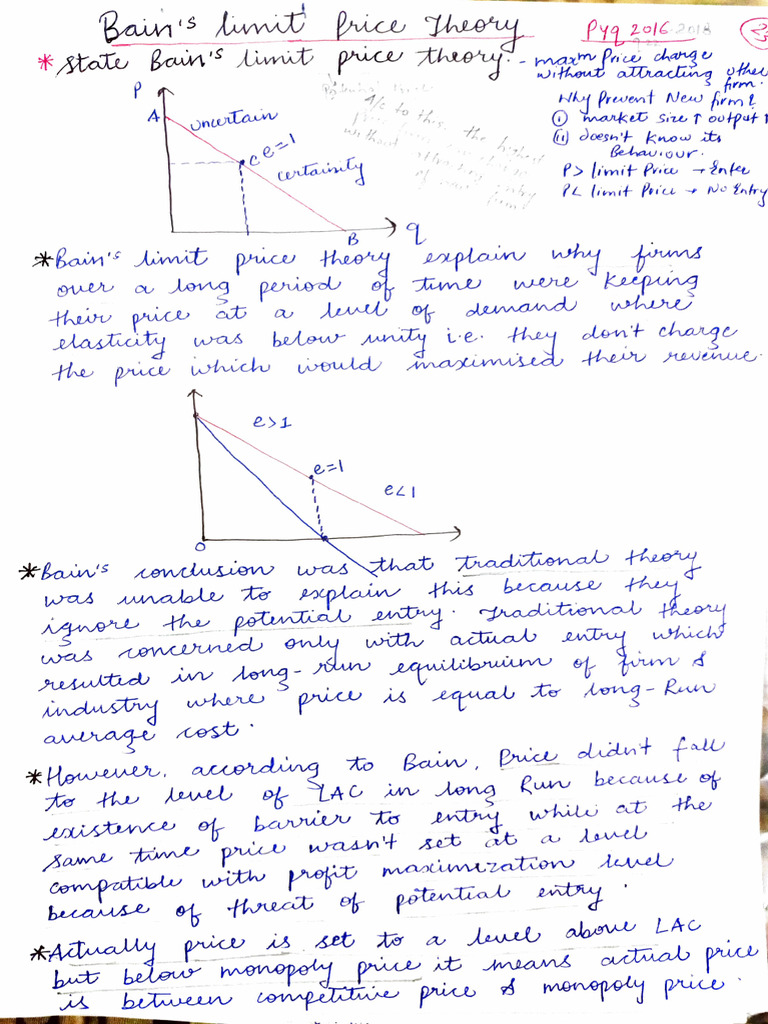 Bain's limit Price Theory
Pyq 2016 2018
* State Bain's limit price theory. - maxm Price charge
without attracting other
firm.
Why Prevent New firm?
(i) market size ↑ output ↑
(ii) doesn't know its
Behaviour.
P > limit Price → Enter
P < limit Price → No Entry
A/c to this, the highest
without attracting entry
of new firm
P
A
uncertain
C e=1
certainity
B
q
*Bain's limit price theory explain why firms
over a long period of time were keeping
their price at a level of demand where
elasticity was below unity i.e. they don't charge
the price which would maximised their revenue.
e>1
e=1
e<1
O
*Bain's conclusion was that traditional theory
was unable to explain this because they
ignore the potential entry. Traditional theory
was concerned only with actual entry which
resulted in long-run equilibrium of firm &
industry where price is equal to long-Run
average cost.
*However, according to Bain, Price didn't fall
to the level of LAC in long Run because of
existence of barrier to entry while at the
same time price wasn't set at a level
compatible with profit maximization level
because of threat of potential entry.
*Actually price is set to a level above LAC
but below monopoly price it means actual price
is between competitive price & monopoly price.